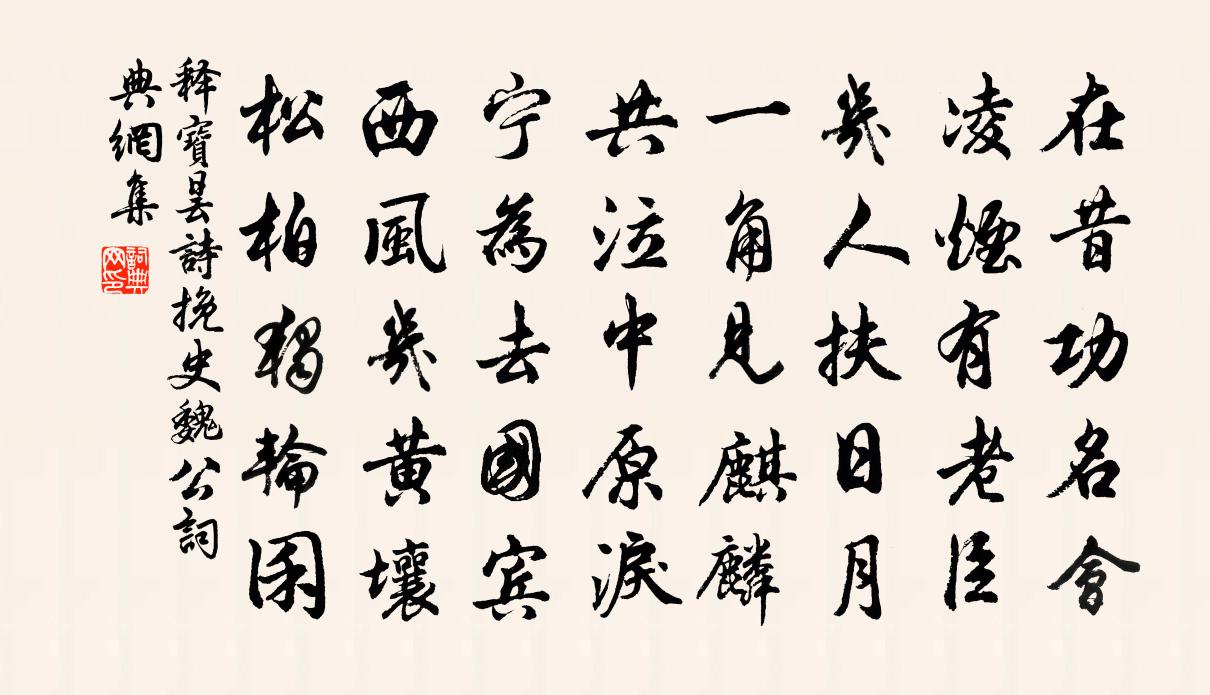 在昔功名會
凌煙有老臣
幾人扶日月
一角見麒麟
共泣中原淚
宁為去國賓
西風幾黃壤
松柏獨輪囷
释寶曇詩挽史魏公詞
典網集
詞典網印